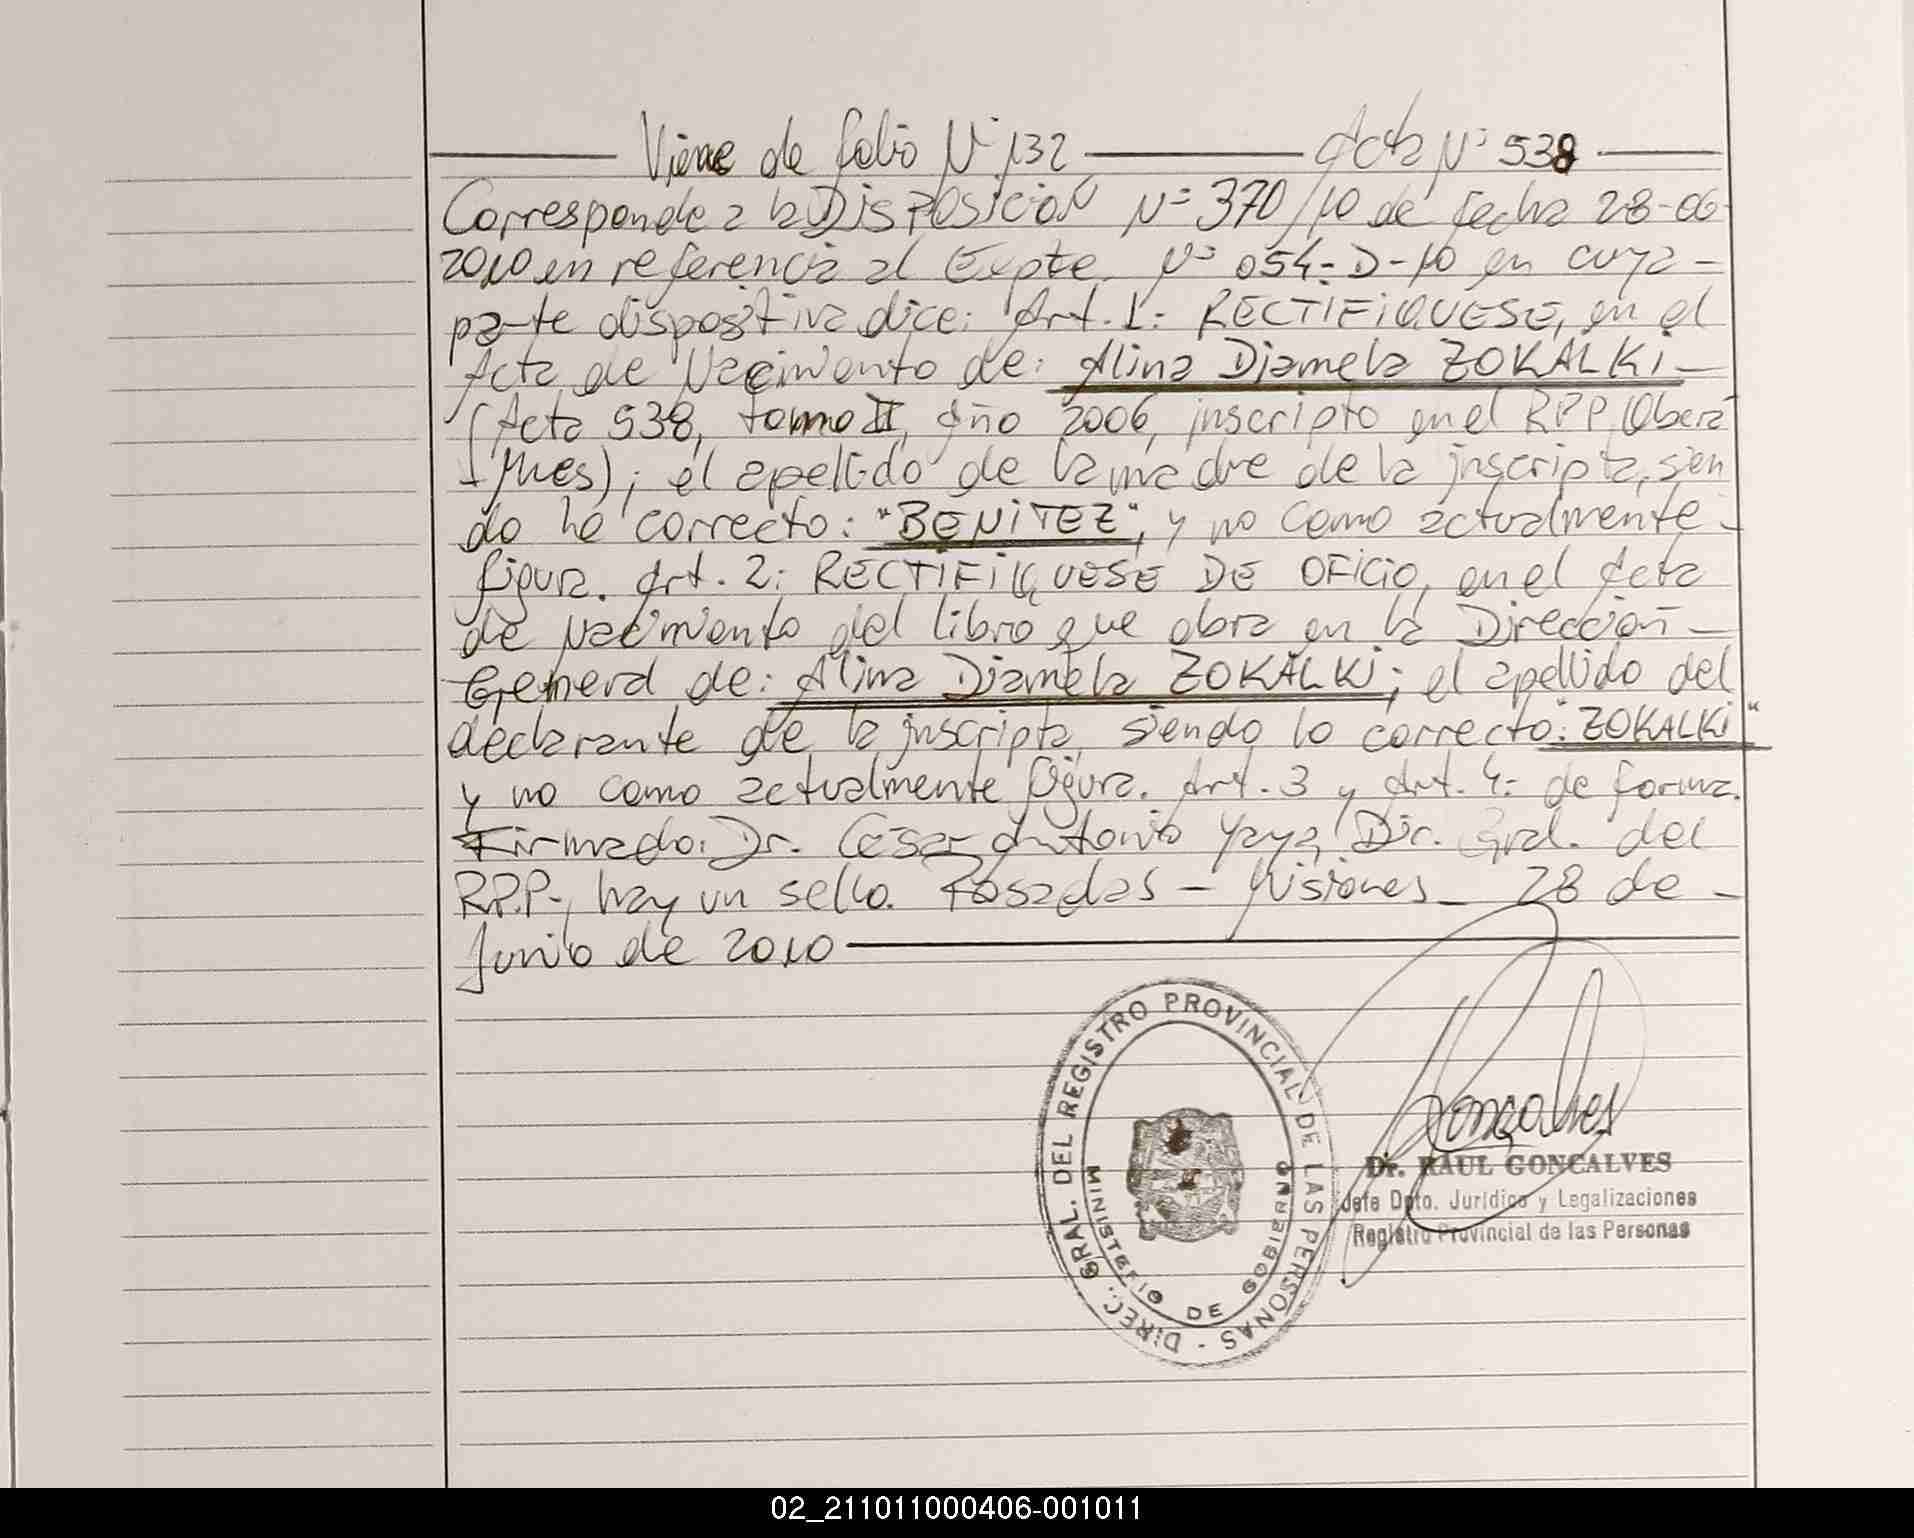 Viene de folio Nº 132 Acta Nº 538
Corresponde a la DISPOSICION Nº 370/10 de fecha 28-06-
2010 en referencia al Expte. Nº 054-D-10 en cuya -
parte dispositiva dice: Art. 1: RECTIFIQUESE, en el
Acta de Nacimiento de: Alina Djamela ZOKALKI -
(Acta 538, tomo II, año 2006, inscripto en el RPP, Oberá
- Mnes); el apellido de la madre de la inscripta, sien
do lo correcto: "BENITEZ", y no como actualmente -
figura. Art. 2: RECTIFIQUESE DE OFICIO, en el Acta
de Nacimiento del libro que obra en la Dirección -
General de: Alina Djamela ZOKALKI; el apellido del
declarante de la inscripta, siendo lo correcto: "ZOKALKI"
y no como actualmente figura. Art. 3 y Art. 4: de forma.
Firmado: Dr. César Antonio Yaya, Dir. Gral. del
RPP-, hay un sello. Posadas - Misiones - 28 de -
Junio de 2010
DIREC. GRAL. DEL REGISTRO PROVINCIAL DE LAS PERSONAS -
MINISTERIO DE GOBIERNO
Goncalves
Dr. RAUL GONCALVES
Jefe Dpto. Jurídico y Legalizaciones
Registro Provincial de las Personas
02_211011000406-001011